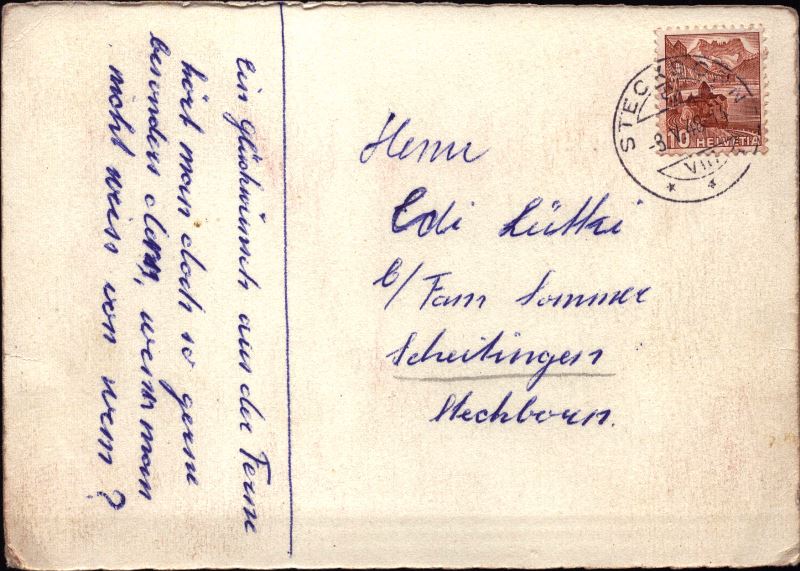 Ein Glückwunsch aus der Ferne
hört man doch so gerne
besonders dann, wenn man
nicht weiss von wem?
Herrn
Edi Lüthi
b/ Fam Sommer
Scheitingen
Steckborn.
STECKBORN
-8.V.48-
VIII
10 HELVETIA